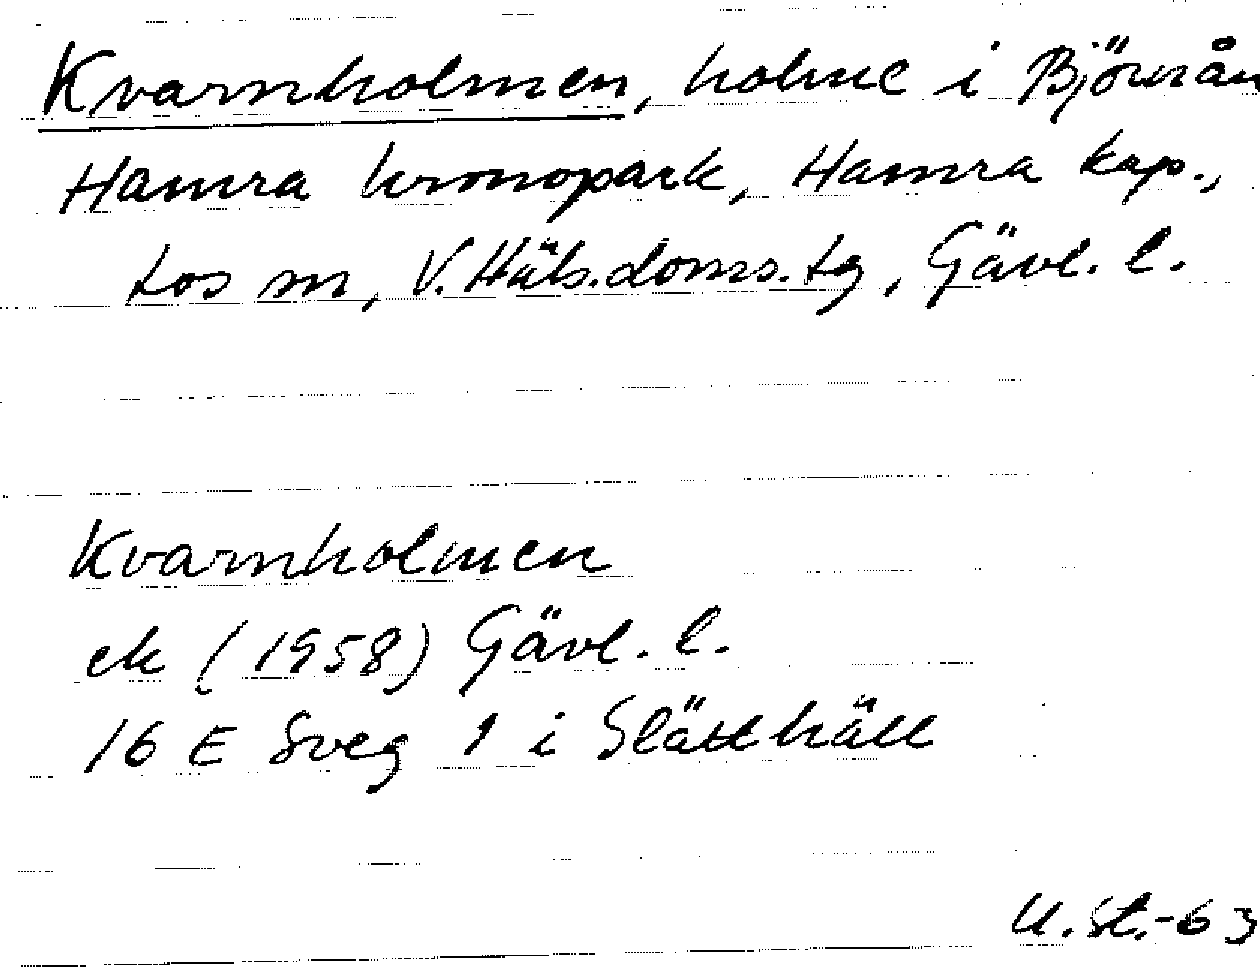 Kvarnholmen, holme i Björnån
Hamra kronopark, Hamra kap.,
Los sn, V. Häls. doms. tg, Gävl. l.
Kvarnholmen
ek (1958) Gävl. l.
16 E Sveg 1 i Slätthäll
U. St.-63